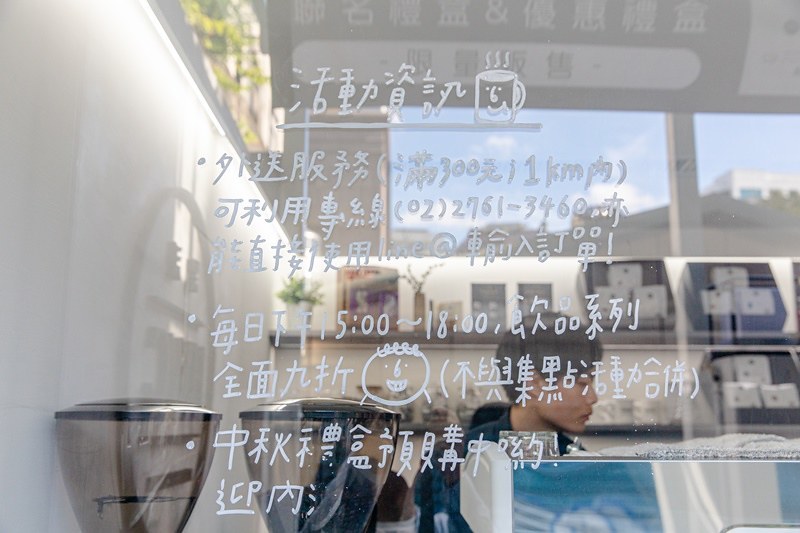 聯名禮盒&優惠禮盒
-限量販售-
活動資訊
•外送服務(滿300元;1km內)
可利用專線(02)2761-3460,亦
能直接使用line@輸入訂單!
•每日下午15:00～18:00,飲品系列
全面九折(不與集點活動合併)
•中秋禮盒預購中喲!
迎內洽